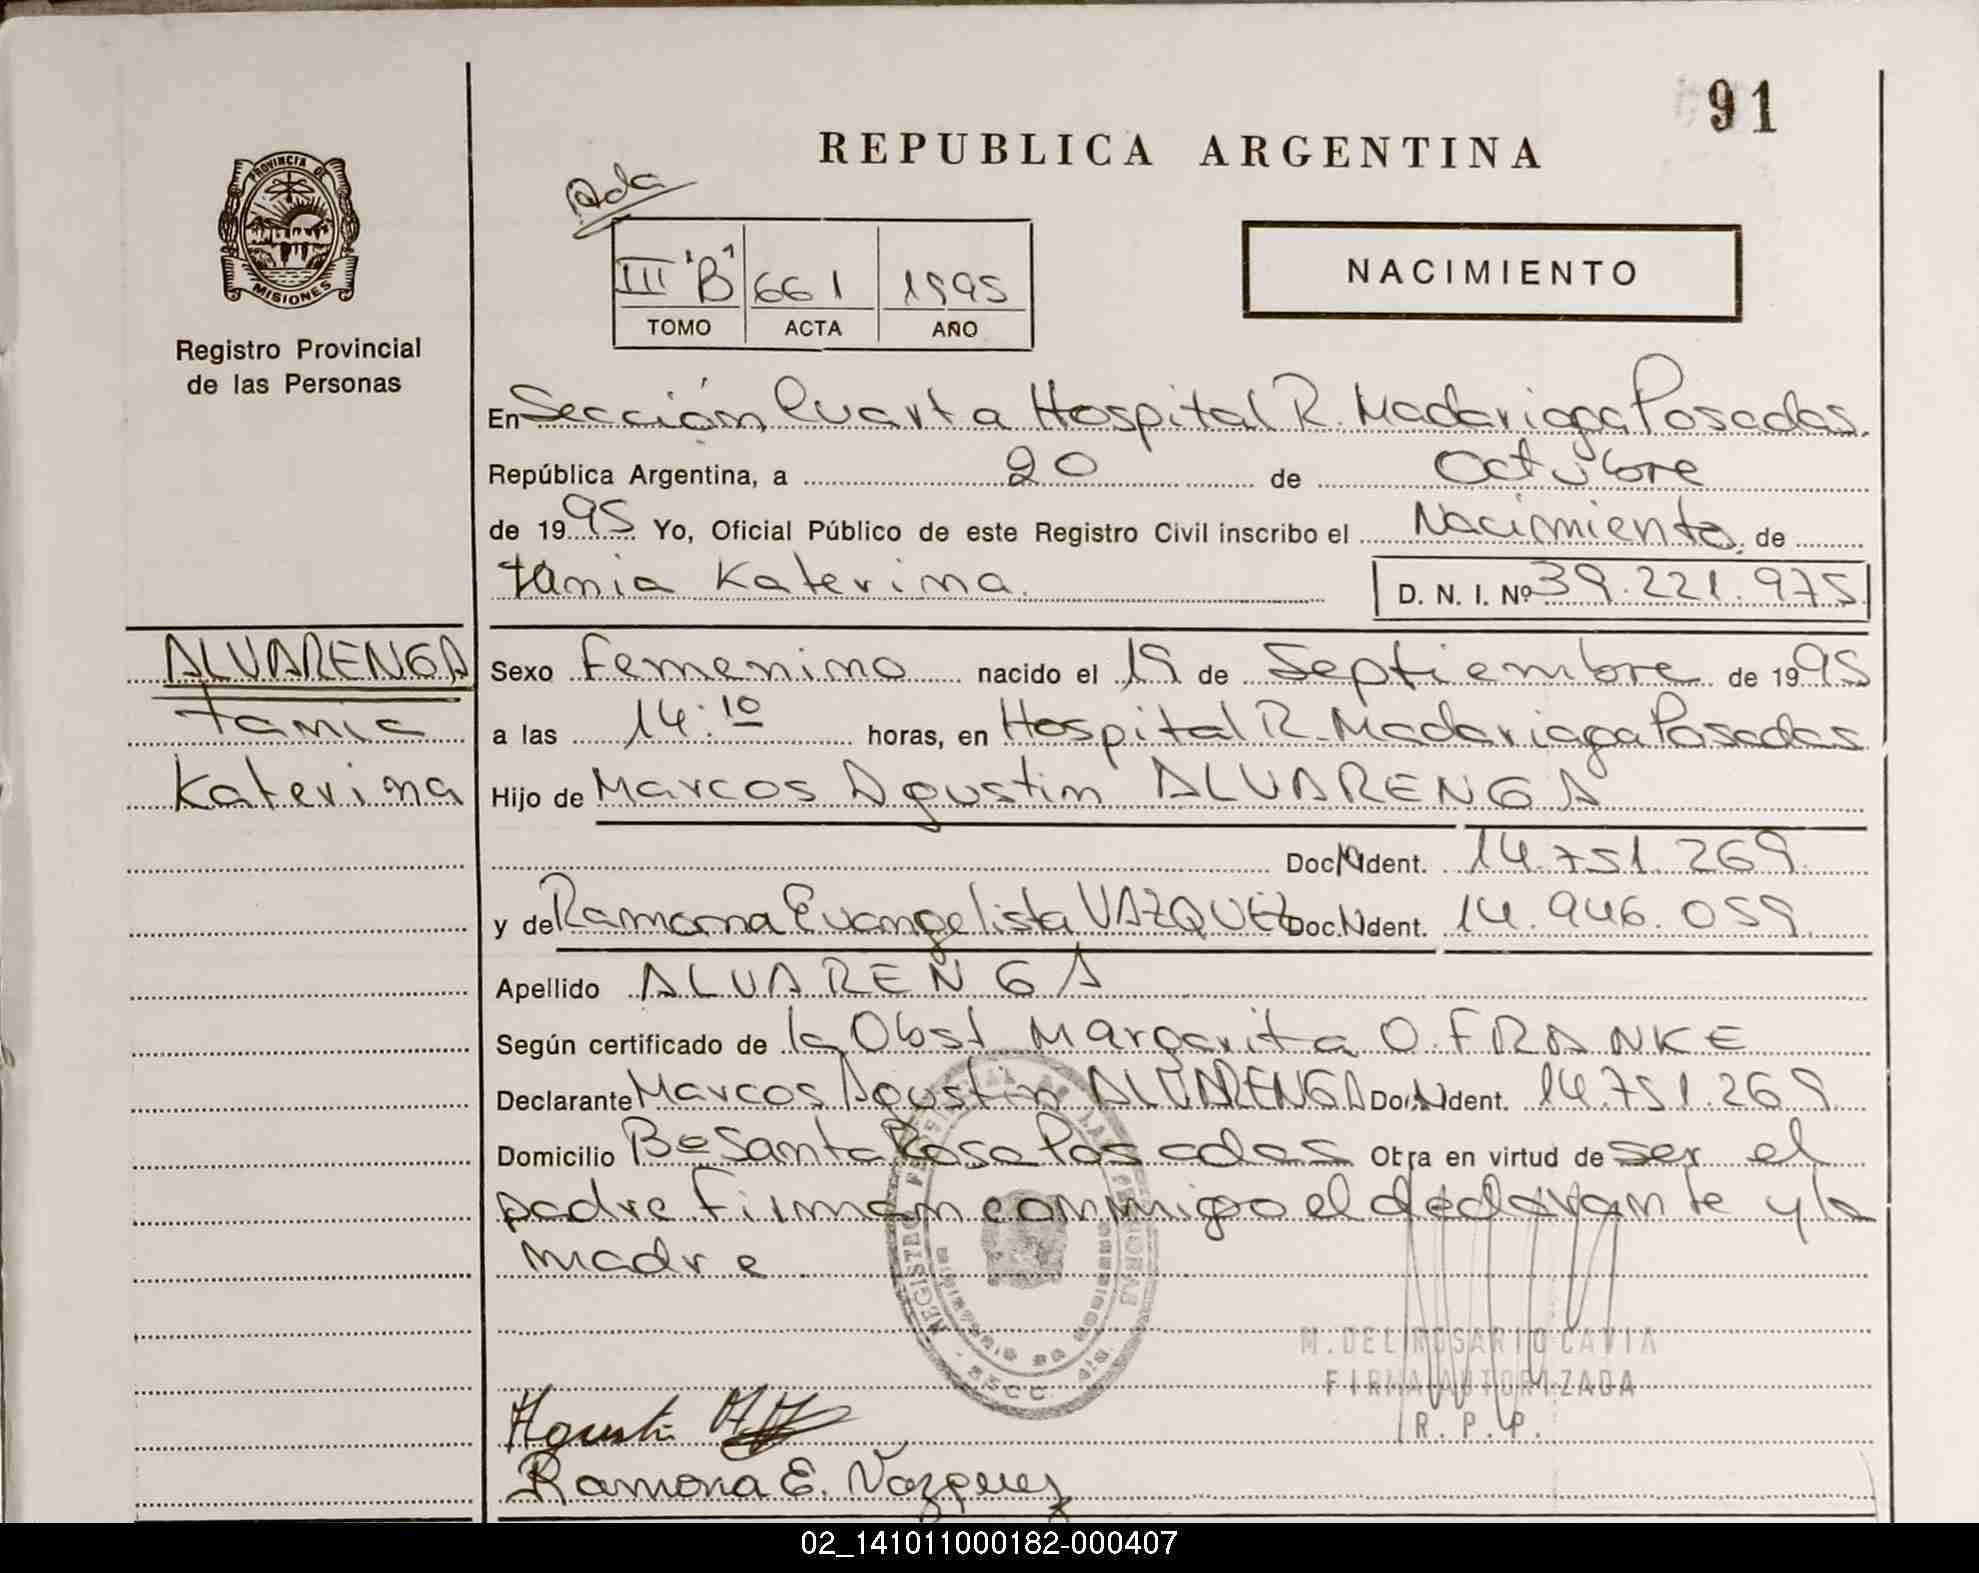 91
REPUBLICA ARGENTINA
PROVINCIA DE
MISIONES
Registro Provincial
de las Personas
III "B" 661 1995
TOMO ACTA AÑO
NACIMIENTO
En Sección Cuarta Hospital R. Madariaga Posadas.
República Argentina, a 20 de Octubre
de 1995 Yo, Oficial Público de este Registro Civil inscribo el Nacimiento de
tania Katerina. D. N. I. Nº 39.221.975
ALVARENGA
tania
Katerina
Sexo Femenino nacido el 19 de Septiembre de 1995
a las 14:10 horas, en Hospital R. Madariaga Posadas
Hijo de Marcos Agustin ALVARENGA
Doc. Ident. 14.751.269
y de Ramona Evangelista VAZQUEZ Doc. Ident. 14.946.059
Apellido ALVARENGA
Según certificado de la Obst Margarita O. FRANKE
Declarante Marcos Agustin ALVARENGA Doc. Ident. 14.751.269
Domicilio Bº Santa Rosa Posadas Obra en virtud de ser el
padre Firman conmigo el declarante y la
madre
M. DEL ROSARIO CAVIA
FIRMA AUTORIZADA
R. P. P.
Agustin
Ramona E. Vazquez
02_141011000182-000407